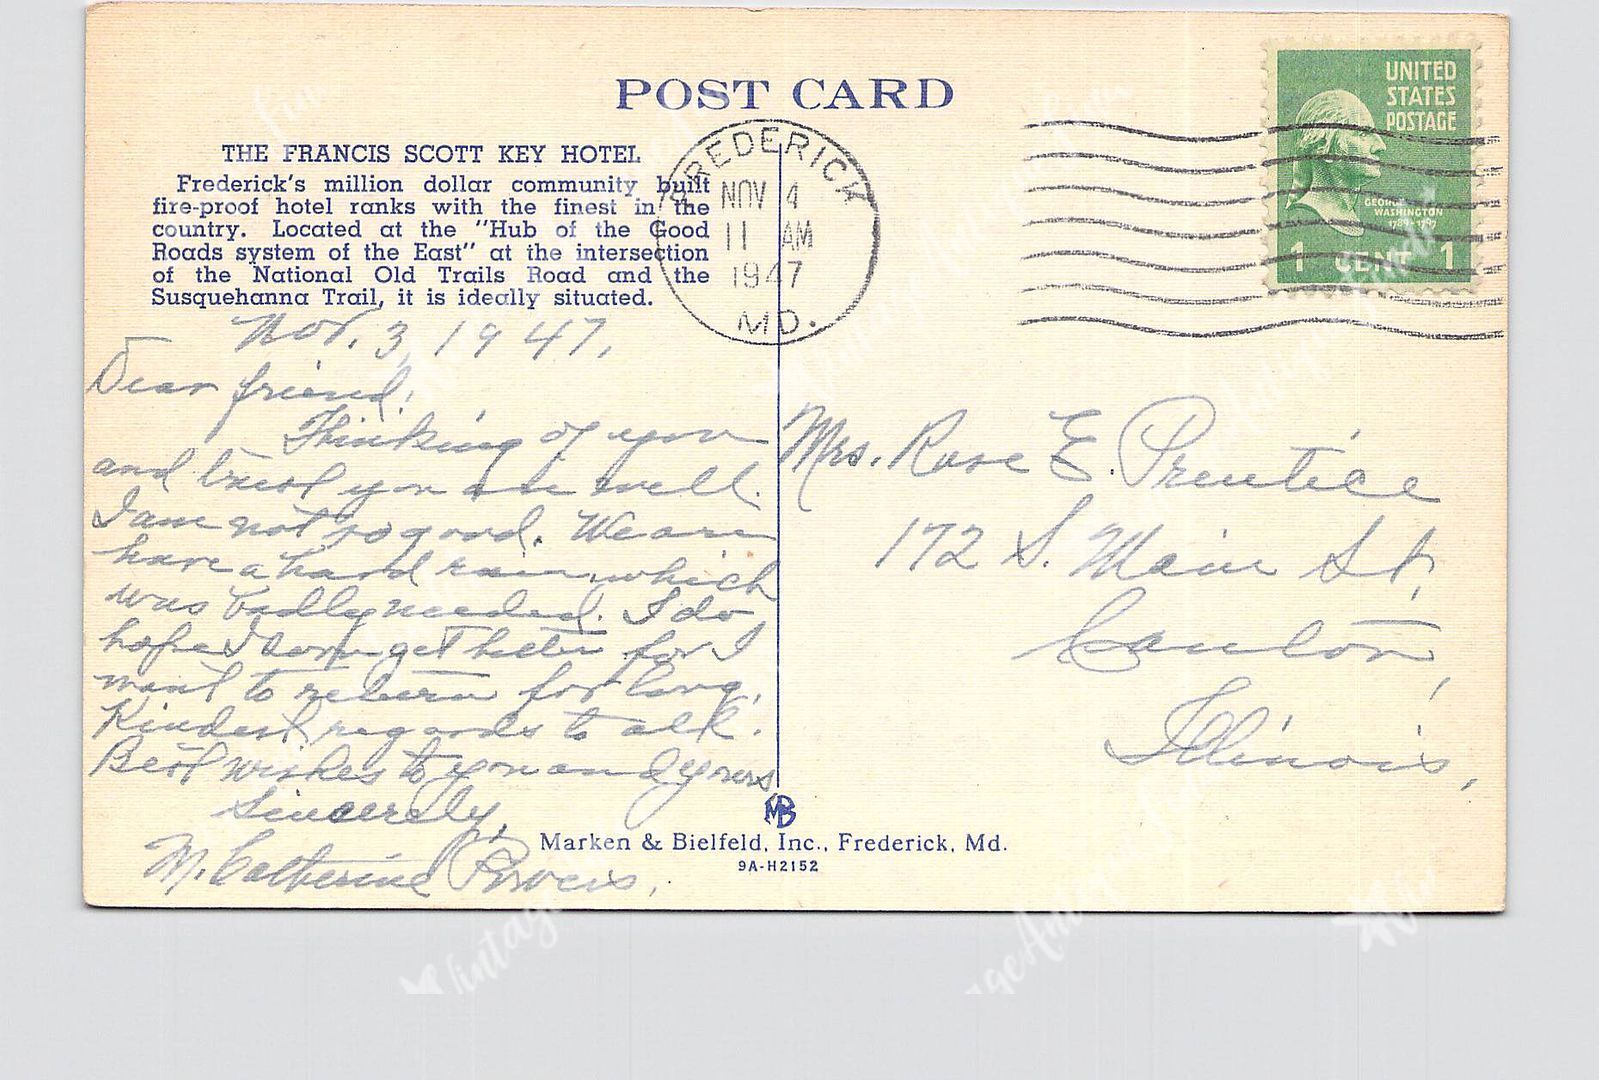 POST CARD
THE FRANCIS SCOTT KEY HOTEL
Frederick's million dollar community built
fire-proof hotel ranks with the finest in the
country. Located at the "Hub of the Good
Roads system of the East" at the intersection
of the National Old Trails Road and the
Susquehanna Trail, it is ideally situated.
FREDERICK
NOV 4
11 AM
1947
MD.
UNITED
STATES
POSTAGE
GEORGE
WASHINGTON
1789-1797
1 CENT 1
Nov. 3, 1947.
Dear friend:
Thinking of you
and trust you are well.
I am not so good. We are
have a hard rain, which
was badly needed. I do
hope I soon get better for I
want to return for long.
Kindest regards to all.
Best wishes to you and yours
Sincerely,
M. Catherine
Mrs. Rose E. Prentice
172 S. Main St,
Canton,
Illinois,
MB
Marken & Bielfeld, Inc., Frederick, Md.
9A-H2152